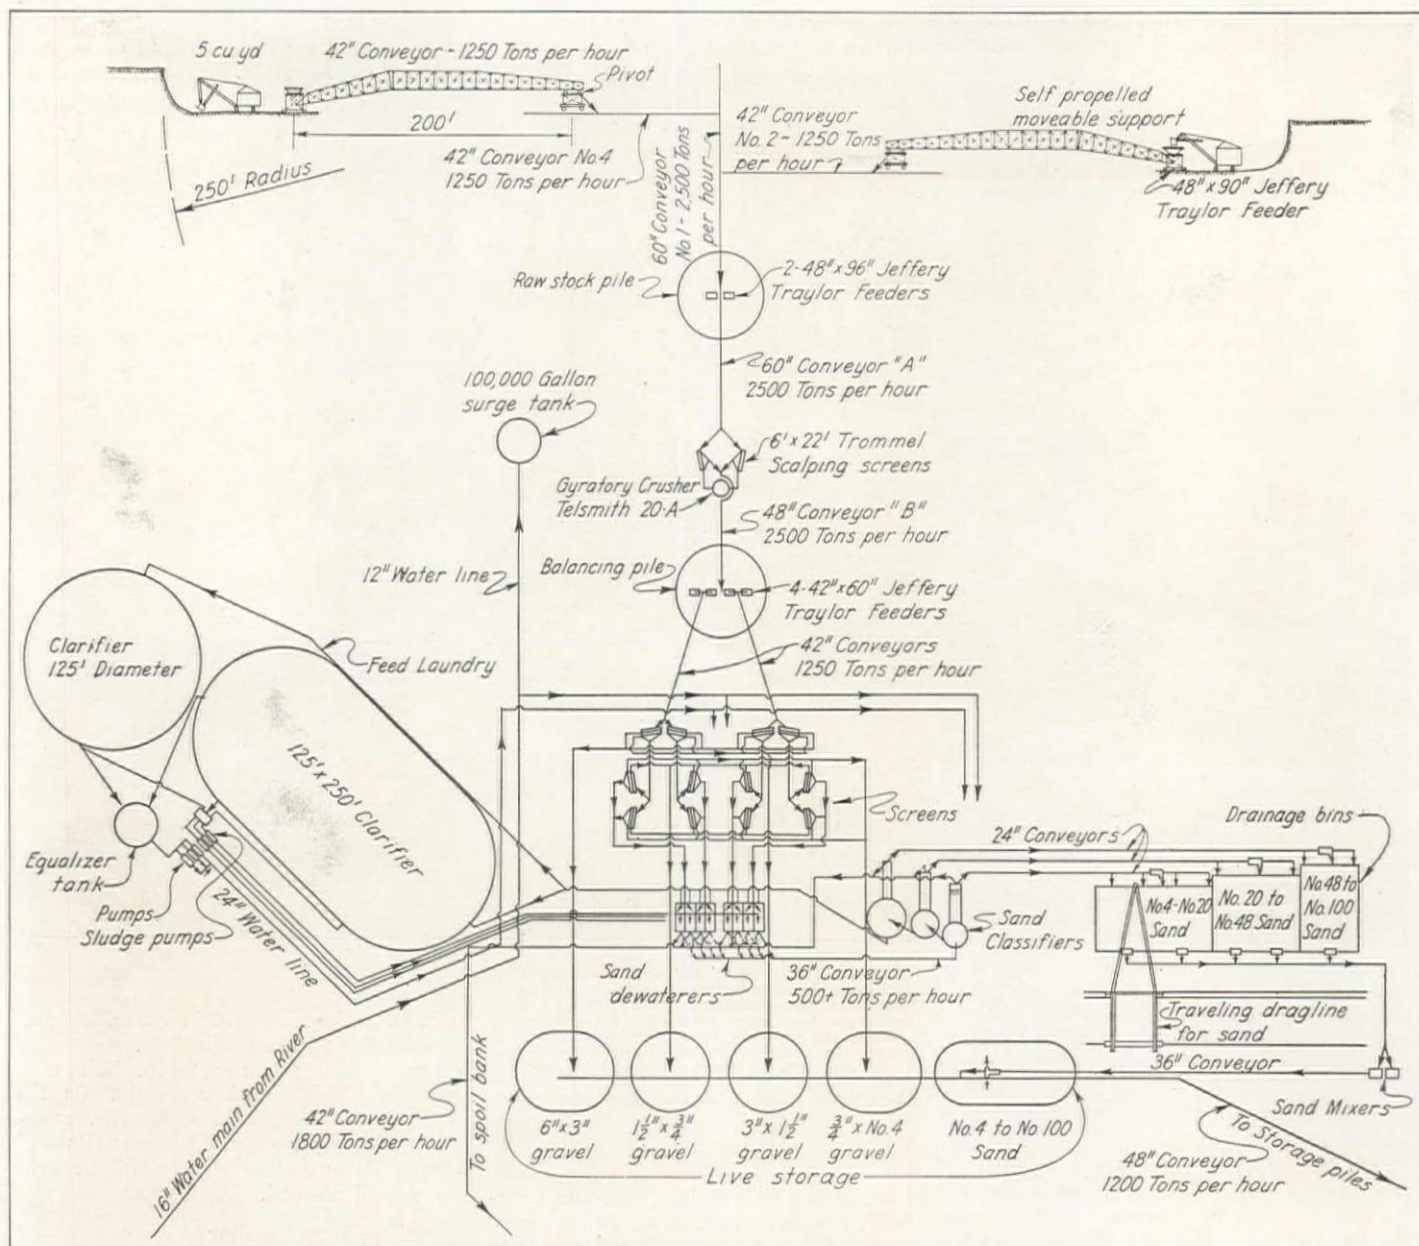 5 cu yd
42" Conveyor - 1250 Tons per hour
Pivot
200'
250' Radius
42" Conveyor No.4
1250 Tons per hour
60" Conveyor
No.1 - 2,500 Tons
per hour
42" Conveyor
No. 2 - 1250 Tons
per hour
Self propelled
moveable support
48" x 90" Jeffery
Traylor Feeder
Raw stock pile
2-48" x 96" Jeffery
Traylor Feeders
60" Conveyor "A"
2500 Tons per hour
100,000 Gallon
surge tank
6' x 22' Trommel
Scalping screens
Gyratory Crusher
Telsmith 20-A
48" Conveyor "B"
2500 Tons per hour
12" Water line
Balancing pile
4-42" x 60" Jeffery
Traylor Feeders
Clarifier
125' Diameter
Feed Laundry
42" Conveyors
1250 Tons per hour
125' x 250' Clarifier
Screens
24" Conveyors
Drainage bins
Equalizer
tank
Pumps
Sludge pumps
24" Water line
No.4 - No.20
Sand
No. 20 to
No.48 Sand
No.48 to
No.100
Sand
Sand
Classifiers
Sand
dewaterers
36" Conveyor
500+ Tons per hour
Traveling dragline
for sand
36" Conveyor
Sand Mixers
16" Water main from River
42" Conveyor
1800 Tons per hour
To spoil bank
6" x 3"
gravel
1 1/2" x 3/4"
gravel
3" x 1 1/2"
gravel
3/4" x No.4
gravel
No.4 to No 100
Sand
Live storage
48" Conveyor
1200 Tons per hour
To Storage piles